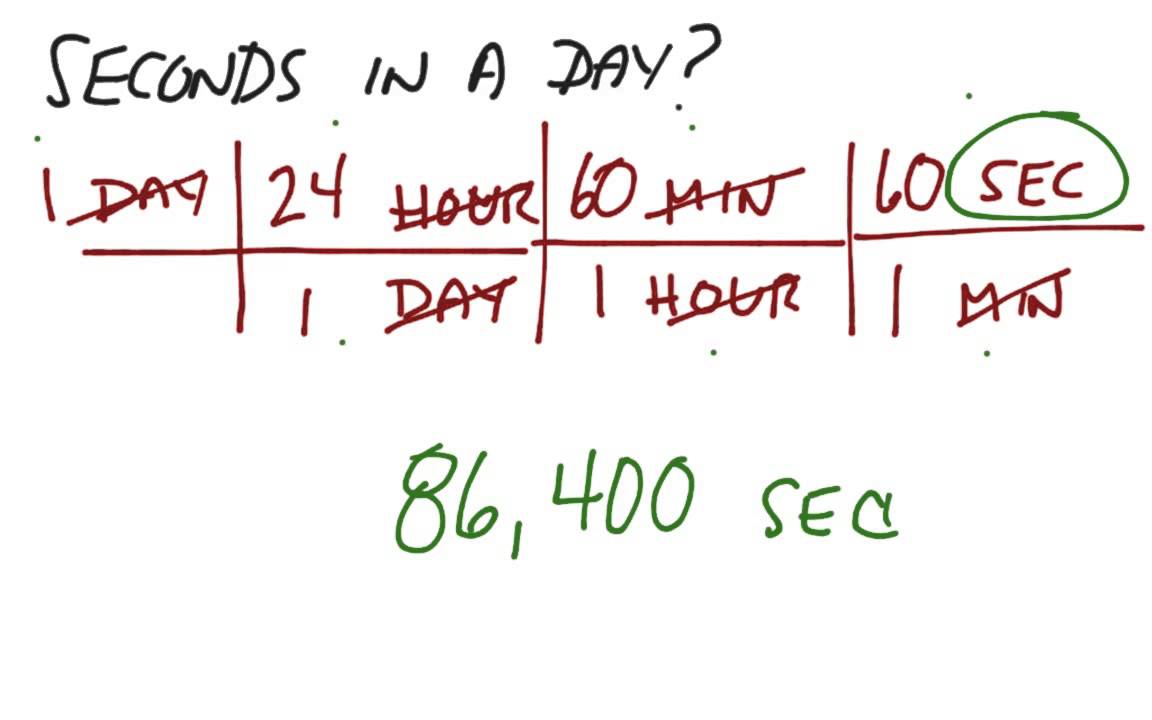 SECONDS IN A DAY?
1 DAY 24 HOUR 60 MIN 60 SEC
1 DAY 1 HOUR 1 MIN
86,400 SEC